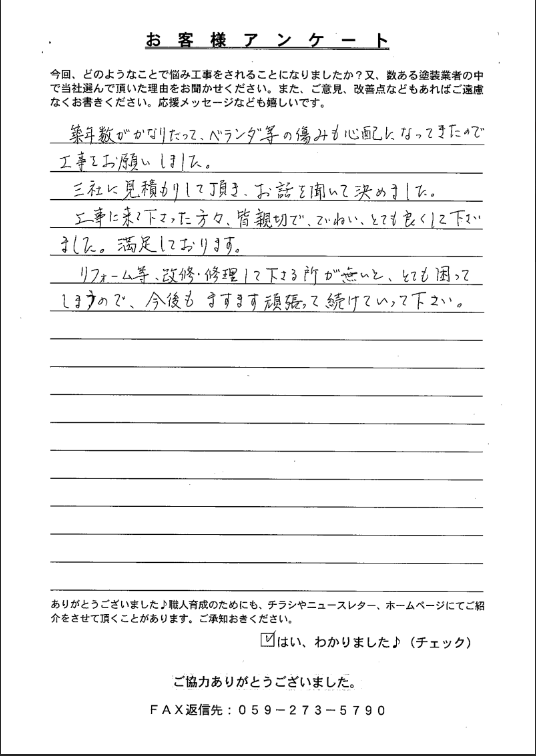 お客様アンケート
今回、どのようなことで悩み工事をされることになりましたか？又、数ある塗装業者の中
で当社選んで頂いた理由をお聞かせください。また、ご意見、改善点などもあればご遠慮
なくお書きください。応援メッセージなども嬉しいです。
築年数がかなりたって、ベランダ等の傷みも心配になってきたので
工事をお願いしました。
三社に見積もりして頂き、お話を聞いて決めました。
工事に来て下さった方々、皆親切で、ていねい、とても良くして下さい
ました。満足しております。
リフォーム等、改修・修理して下さる所が無いと、とても困って
しまうので、今後もますます頑張って続けていって下さい。
ありがとうございました♪職人育成のためにも、チラシやニュースレター、ホームページにてご紹
介をさせて頂くことがあります。ご承知おきください。
☑はい、わかりました♪（チェック）
ご協力ありがとうございました。
ＦＡＸ返信先：０５９－２７３－５７９０